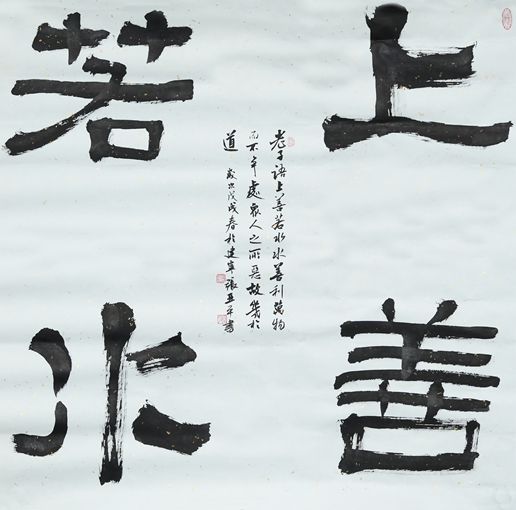 上善
若水
老子語上善若水水善利萬物
而不争處衆人之所惡故幾於
道 歲次戊戌春於建寧張亞平書